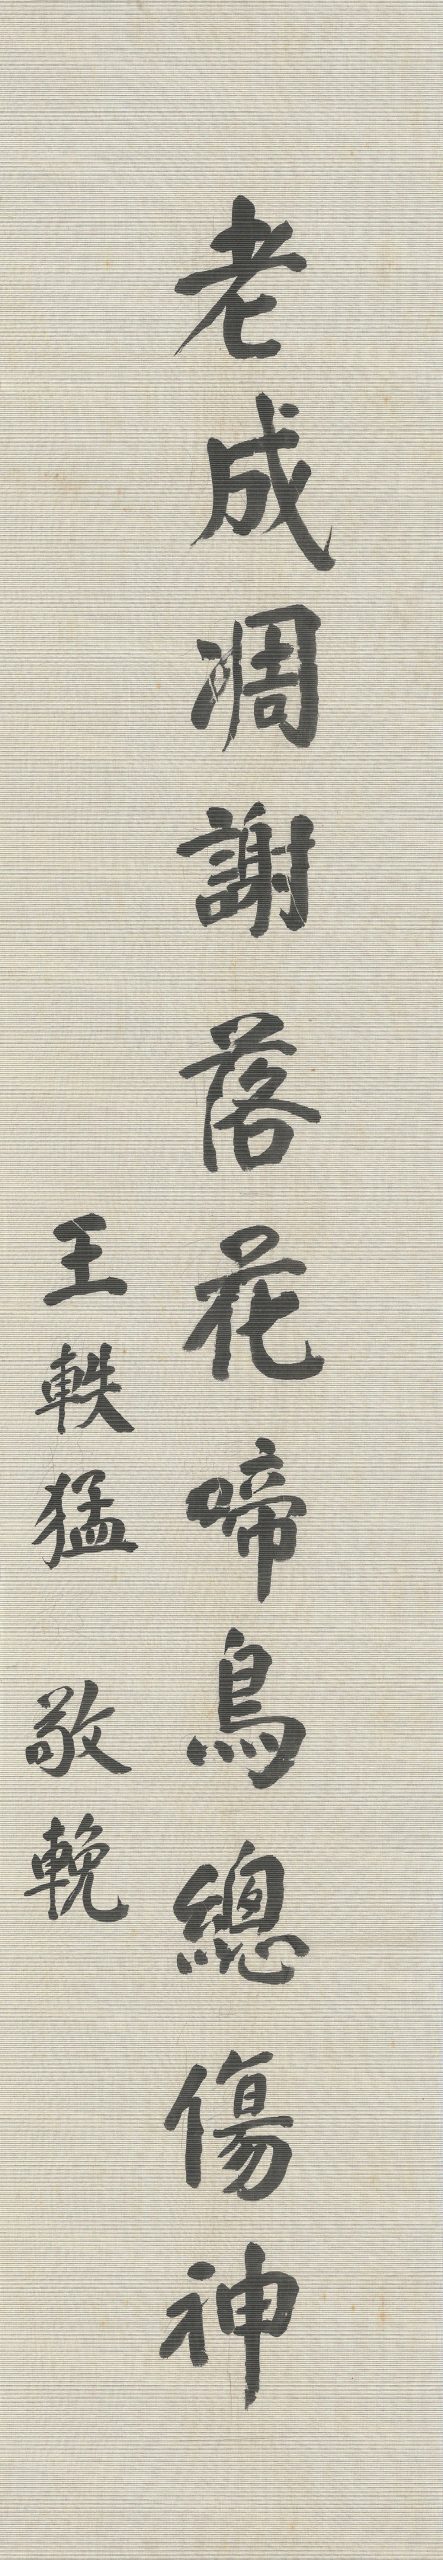 老成凋謝落花啼鳥總傷神
王軼猛 敬輓